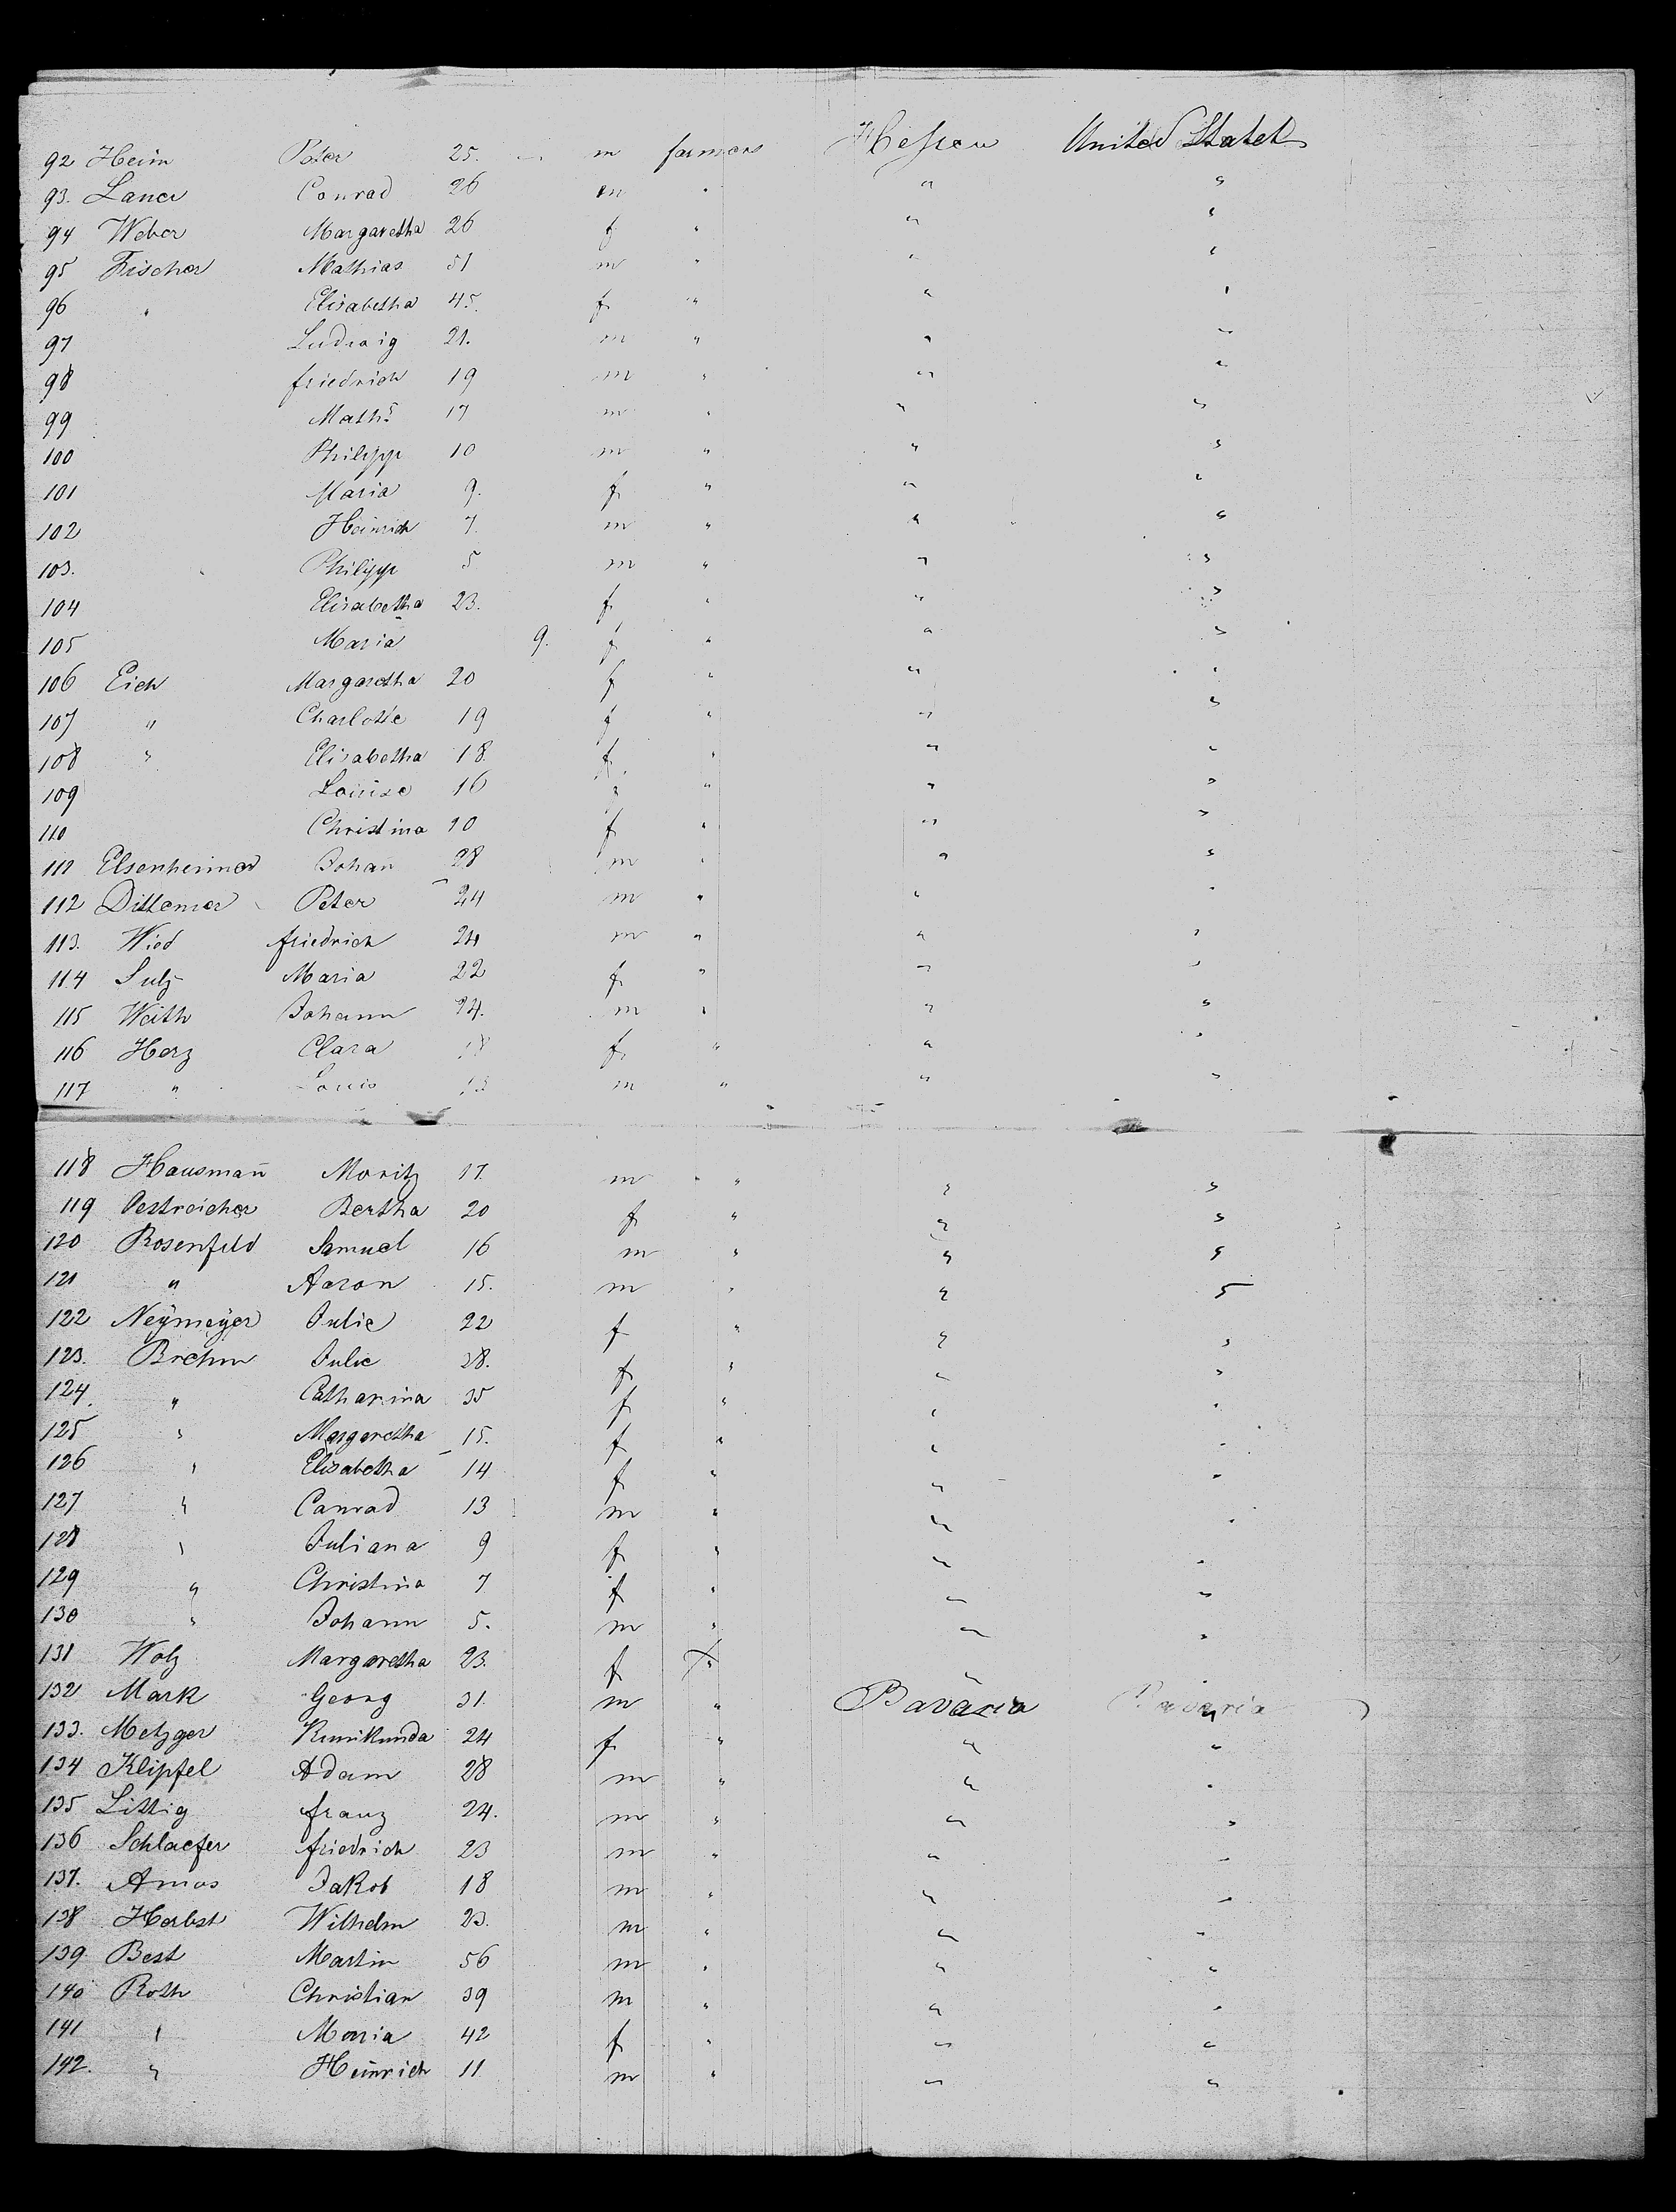 92 Heim Peter 25. — m farmers Hessen United States
93. Lauer Conrad 26 m " " "
94 Weber Margaretha 26 f " " "
95 Fischer Mathias 51 m " " "
96 " Elisabetha 45. f " " "
97 Ludwig 21. m " " "
98 friedrich 19 m " " "
99 Maths 17 m " " "
100 Philipp 10 m " " "
101 Maria 9. f " " "
102 Heinrich 7. m " " "
103. Philipp 5 m " " "
104 Elisabetha 23. f " " "
105 Maria 9. f " " "
106 Eich Margaretha 20 f " " "
107 " Charlotte 19 f " " "
108 " Elisabetha 18. f " " "
109 Louise 16 " " " "
110 Christina 10 f " " "
111 Elsenheimer Johan̄ 28 m " " "
112 Dittemer Peter 24 m " " "
113. Wied friedrich 24 m " " "
114 Sulz Maria 22 f " " "
115 Weith Johann 24. m " " "
116 Herz Clara f " " "
117 " Louis m " " "
118 Hausman̄ Moritz 17. m " " "
119 Oestreicher Bertha 20 f " " "
120 Rosenfeld Samuel 16 m " " "
121 " Aaron 15. m " " "
122 Neÿmeÿer Julie 22 f " " "
123. Brehm Julie 38. f " " "
124. " Catharina 35 f " " "
125 " Margaretha 15. f " " "
126 " Elisabetha 14 f " " "
127 " Conrad 13 m " " "
128 " Juliana 9 f " " "
129 " Christina 7 f " " "
130 " Johann 5. m " " "
131 Wolz Margaretha 23. f " " "
132 Mark Georg 31. m " Bavaria "
133. Metzger Kunikunda 24 f " " "
134 Klipfel Adam 28 m " " "
135 Littig franz 24. m " " "
136 Schlaefer friedrich 23 m " " "
137. Amos Jakob 18 m " " "
138 Herbst Wilhelm 23. m " " "
139 Best Martin 56 m " " "
140 Roth Christian 39 m " " "
141 " Maria 42 f " " "
142. " Heinrich 11 m " " "